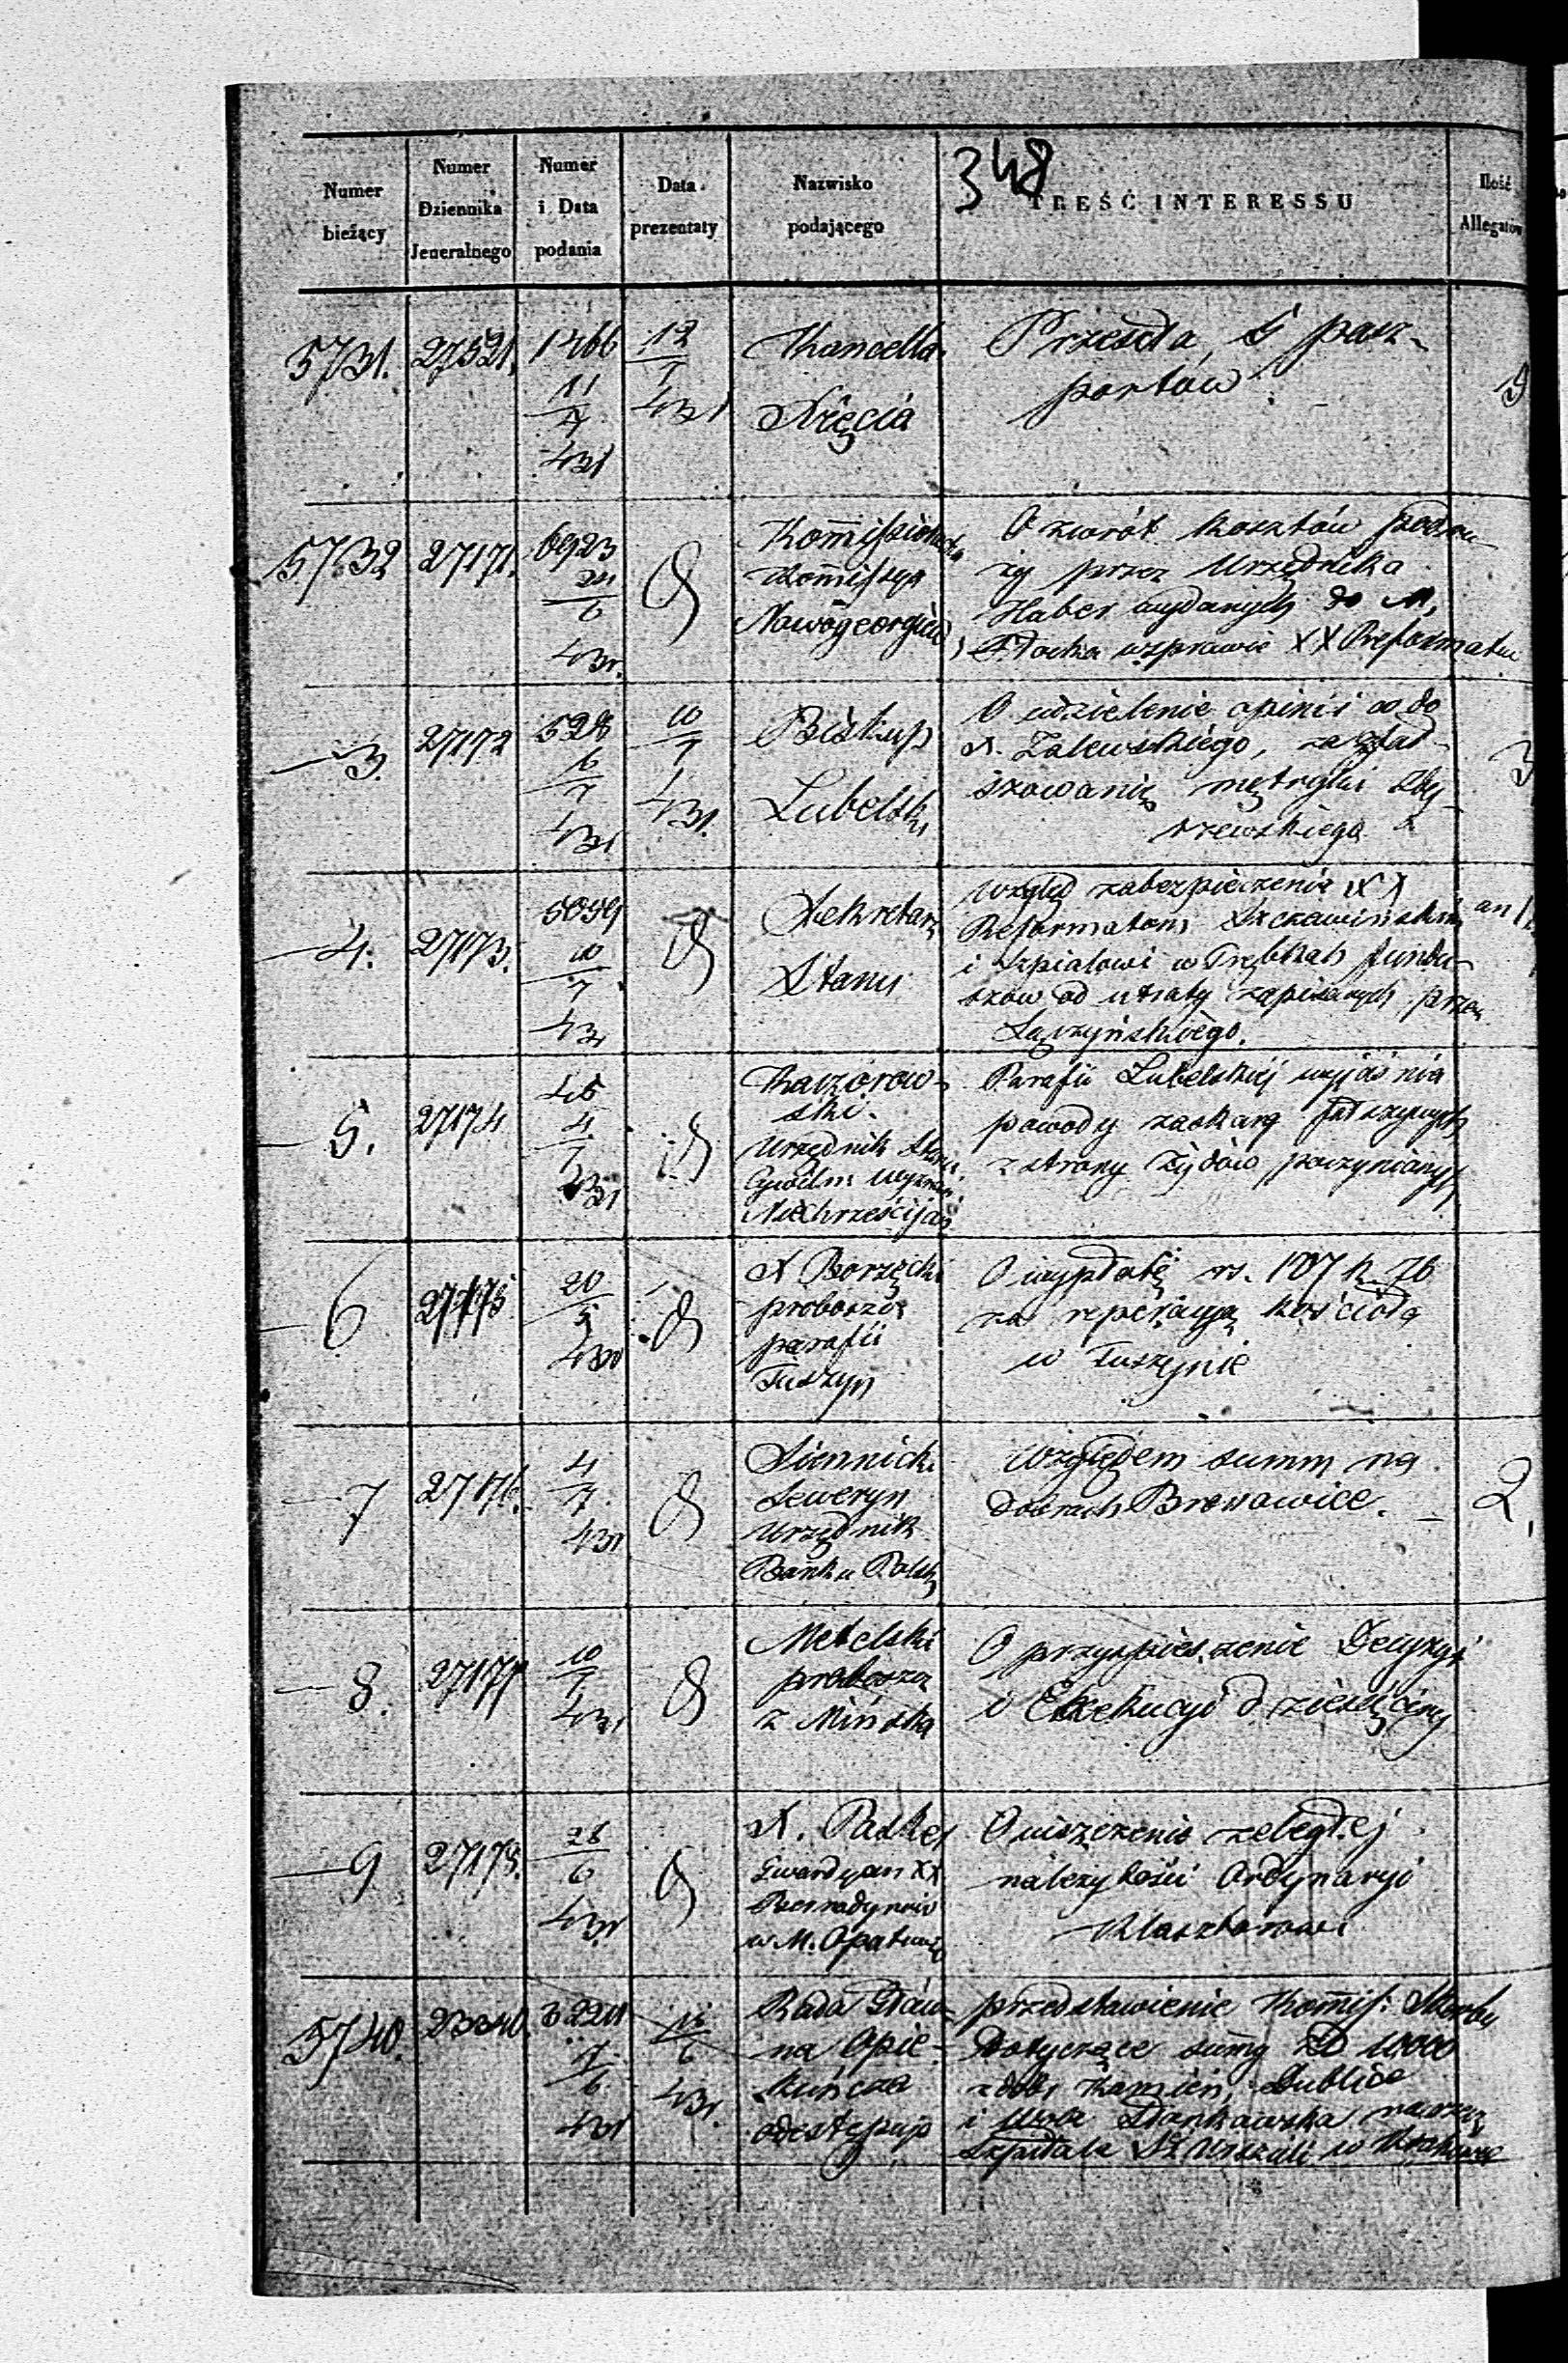 348
Numer bieżący
Numer Dziennika Jeneralnego
Numer i Data podania
Data prezentaty
Nazwisko podającego
TREŚĆ INTERESSU
Ilość Allegatów
5731. 27521. 1466 11/7 431 12/7 431
Kancella.
Xięcia
Przesyła 5 pasz-
portów
5732 27171. 6923 24/6 431.
Kommissya
Nowogeorgiew
O zwrót kosztów podró-
ży przez Urzędnika
Haber wydanych do M.
Płocka w sprawie XX Reformatów
3. 27172 528 6/7 431 10/7 431.
Biskup
Lubelski
O udzielenie opinii co do
X. Zalewskiego, za sfał-
szowanie metryki
szewskiego
3
4. 27173. 5059 10/7 431
Sekretarz
Stanu
Względ zabezpieczenia XX
Reformatom Szczawińskim
i Szpitalowi w Trębkach fundu-
szów od utraty zapisanych przez
Łączyńskiego.
5. 27174 45 4/7 431
Kaczorow-
ski.
Urzędnik Stanu
Cywiln: Wyznań
Niechrześcijań
Parafii Lubelskiej wyjaśnia
powody zaskarg fałszywych
z strony Żydów poczynionych
6 27175 20/5
X Borzęcki
proboszcz
parafii
Tuszyn
O wypłatę rs. 107 k. 76
na reperacyą kościoła
w Tuszynie
7 27176. 4/7 431
Siennicki
Seweryn
Urzędnik
Banku Polsk
Względem summ na
dobrach Bronowice.
2.
8. 27177 10/7 431
Metelski
proboszcz
z Mińska
O przyspieszenie Decyzyi
i Exekucyi dziesięciny
9 27178. 26/6 431
X. Paskes
Gwardyan XX
Bernadynów
w M. Opatowie
O uiszczenie zaległej
należytości Ordynaryi
Klasztorowi
5740. 23340. 3224 7/6 431 15/6 431.
Rada Głów-
na Opie-
kuńcza
odestępuje
przedstawienie Kommis: Skarbu
Dotyczące summy Zł 10000
z dóbr Kamień,
i Wola
Szpitala Sz Urszuli w Krakowie